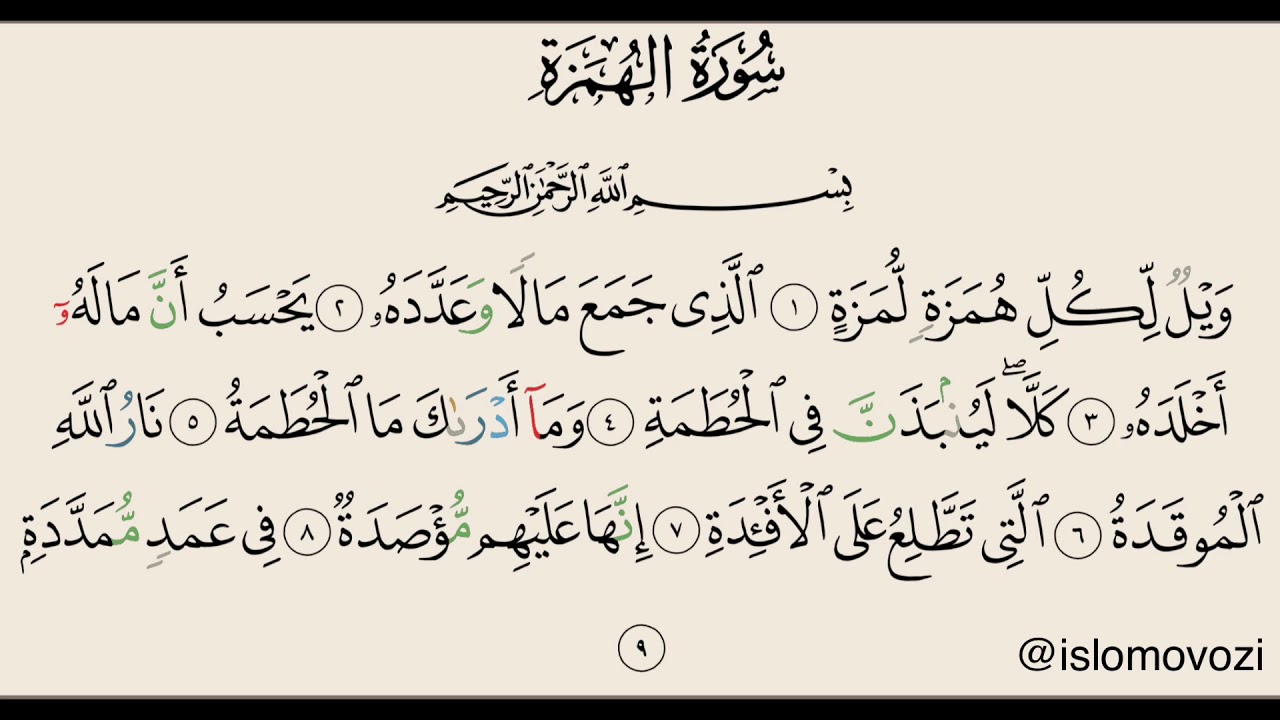 سُورَةُ الهُمَزَةِ
بِسْمِ ٱللَّهِ ٱلرَّحْمَٰنِ ٱلرَّحِيمِ
وَيْلٌ لِّكُلِّ هُمَزَةٍ لُّمَزَةٍ ١ ٱلَّذِى جَمَعَ مَالًا وَعَدَّدَهُۥ ٢ يَحْسَبُ أَنَّ مَالَهُۥٓ
أَخْلَدَهُۥ ٣ كَلَّا ۖ لَيُنۢبَذَنَّ فِى ٱلْحُطَمَةِ ٤ وَمَآ أَدْرَىٰكَ مَا ٱلْحُطَمَةُ ٥ نَارُ ٱللَّهِ
ٱلْمُوقَدَةُ ٦ ٱلَّتِى تَطَّلِعُ عَلَى ٱلْأَفْـِٔدَةِ ٧ إِنَّهَا عَلَيْهِم مُّؤْصَدَةٌ ٨ فِى عَمَدٍ مُّمَدَّدَةٍۭ
٩
@islomovozi